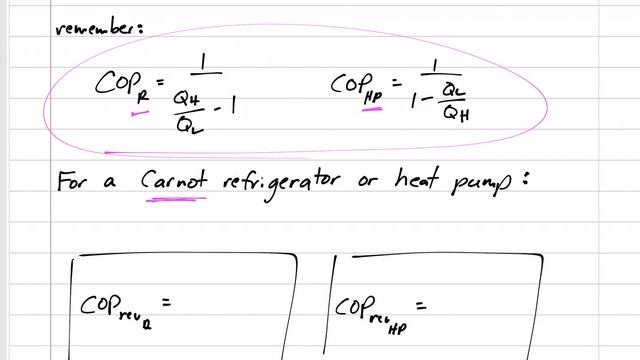 remember:
COP_R = 1 / (Q_H / Q_L - 1)    COP_HP = 1 / (1 - Q_L / Q_H)
For a Carnot refrigerator or heat pump:
COP_rev_R =    COP_rev_HP =